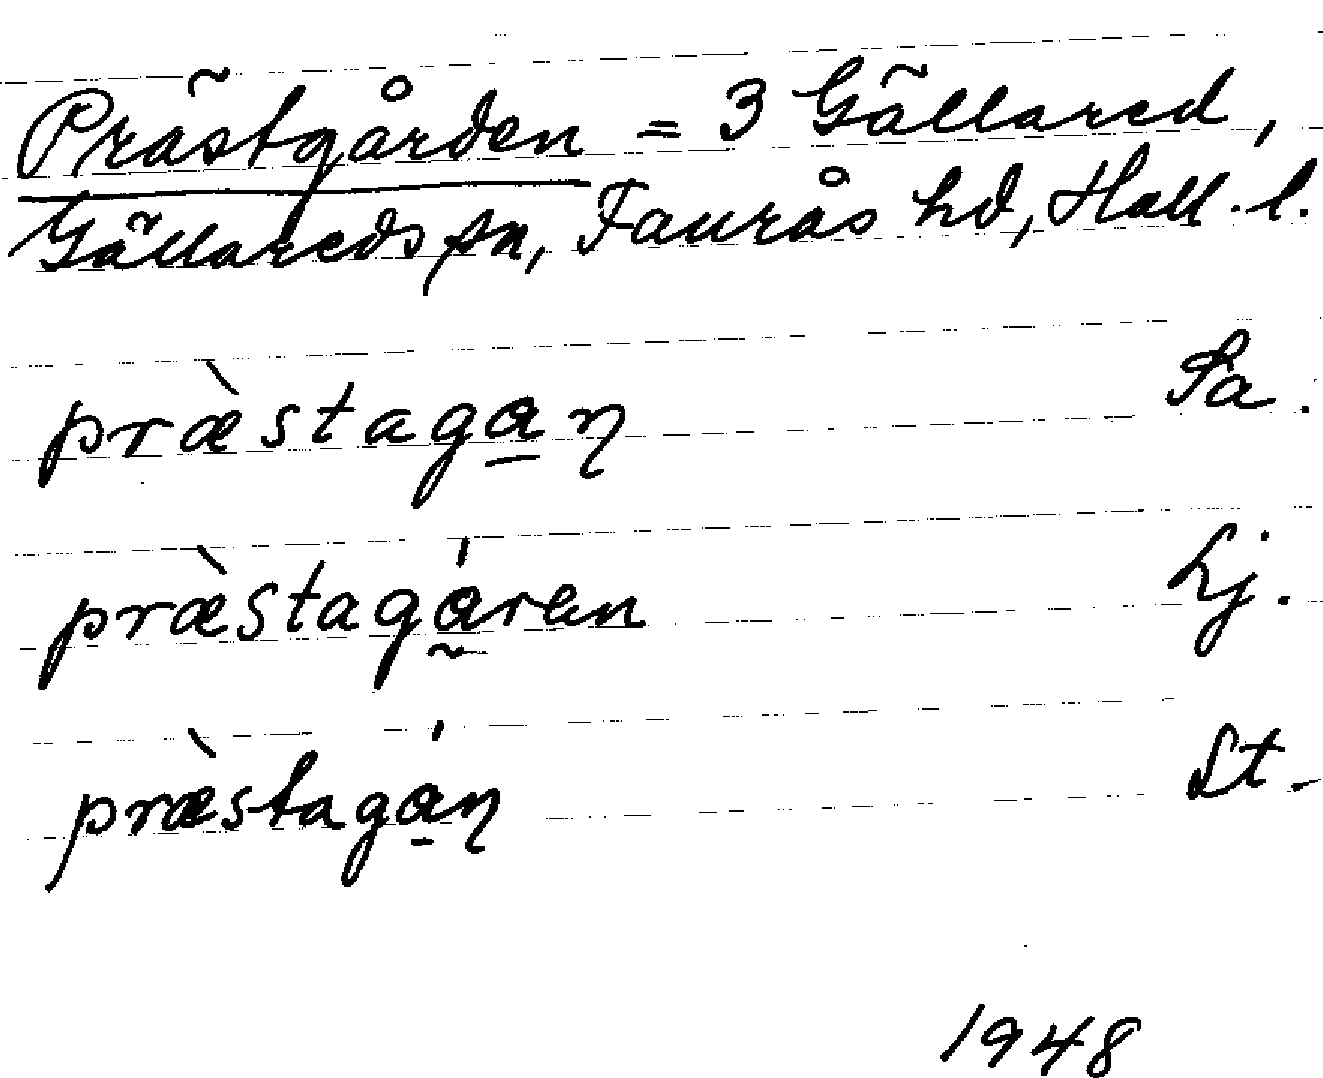 Prästgården = 3 Gällared,
Gällareds sn, Faurås hd, Hall. l.
præ̀staga̲ŋ Sa.
præ̀stagá̰ren Lj.
præ̀stagá̲ŋ St.
1948